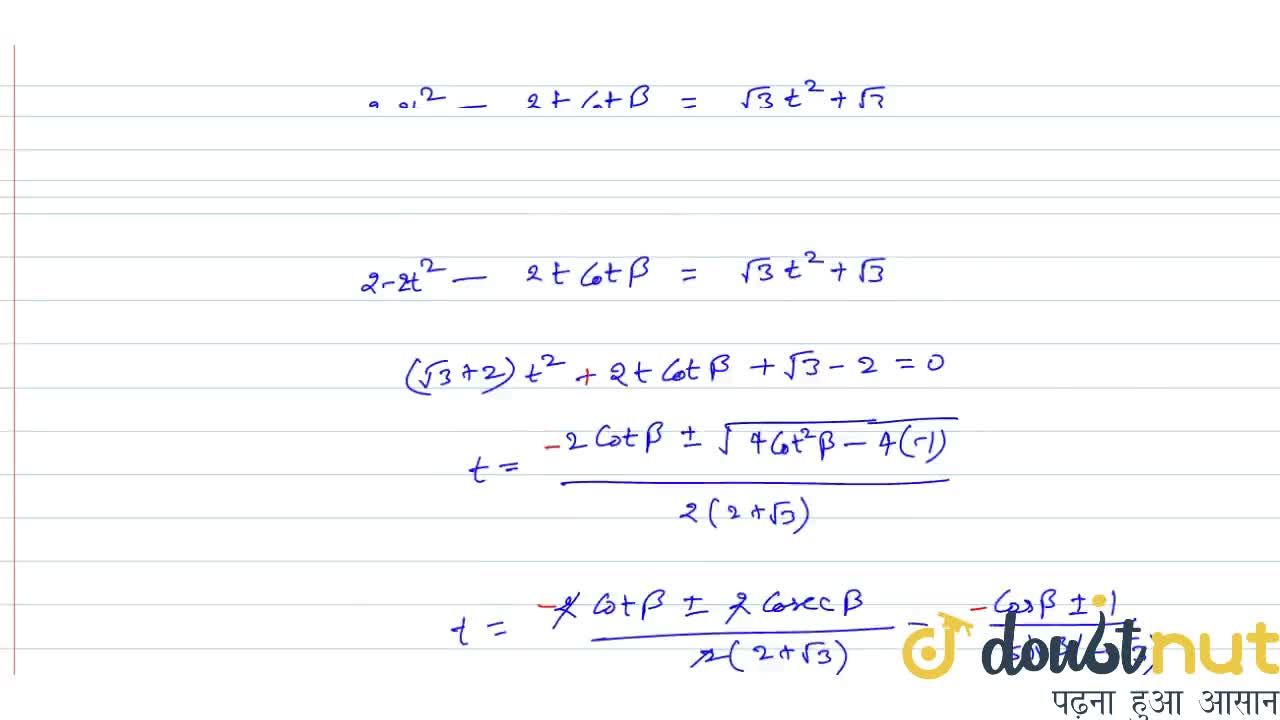 2-2t² - 2t Cot β = √3 t² + √3
2-2t² - 2t Cot β = √3 t² + √3
(√3+2) t² + 2t Cot β + √3 - 2 = 0
t = -2 Cot β ± √(4Cot²β - 4(-1)) / 2(2+√3)
t = -2 Cot β ± 2 Cosec β / 2(2+√3) = -Cosβ ± 1
doubtnut
पढ़ना हुआ आसान